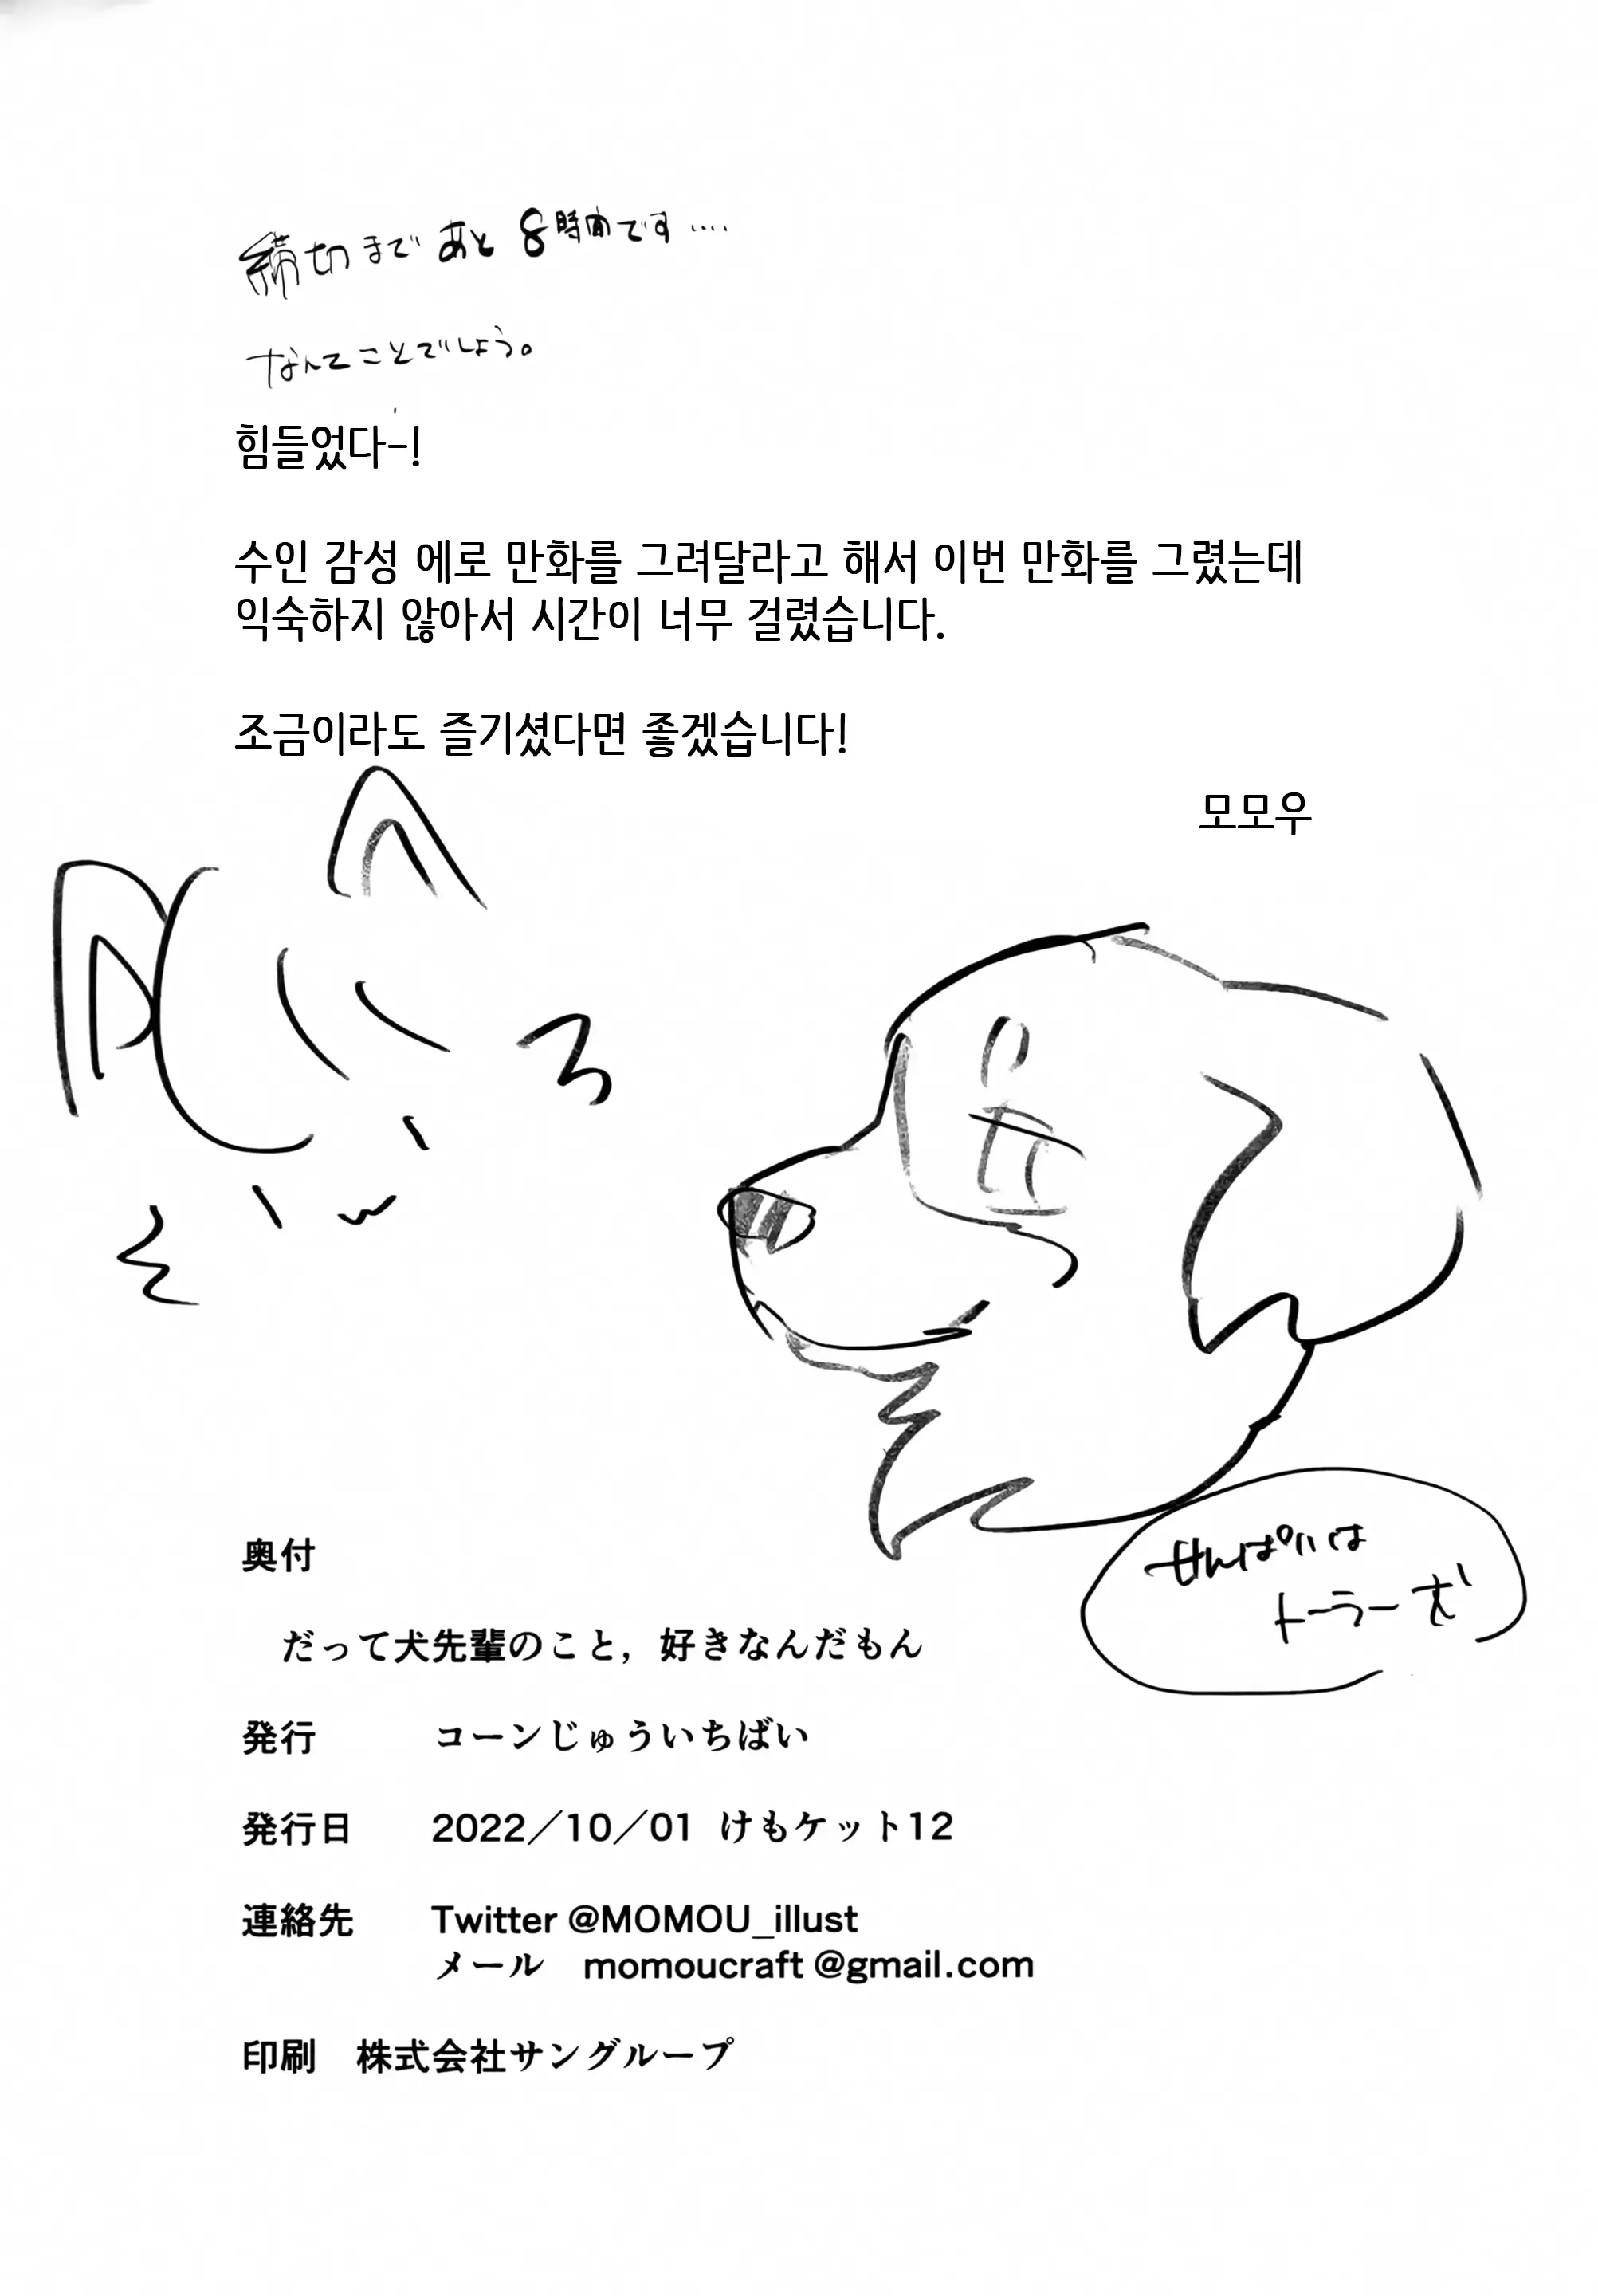 締切まであと8時間です....
なんてことでしょう。
힘들었다-!
수인 감성 에로 만화를 그려달라고 해서 이번 만화를 그렸는데
익숙하지 않아서 시간이 너무 걸렸습니다.
조금이라도 즐기셨다면 좋겠습니다!
모모우
せんぱいは
トーラーだ
奥付
だって犬先輩のこと，好きなんだもん
発行 コーンじゅういちばい
発行日 2022／10／01 けもケット12
連絡先 Twitter @MOMOU_illust
メール momoucraft @gmail.com
印刷 株式会社サングループ